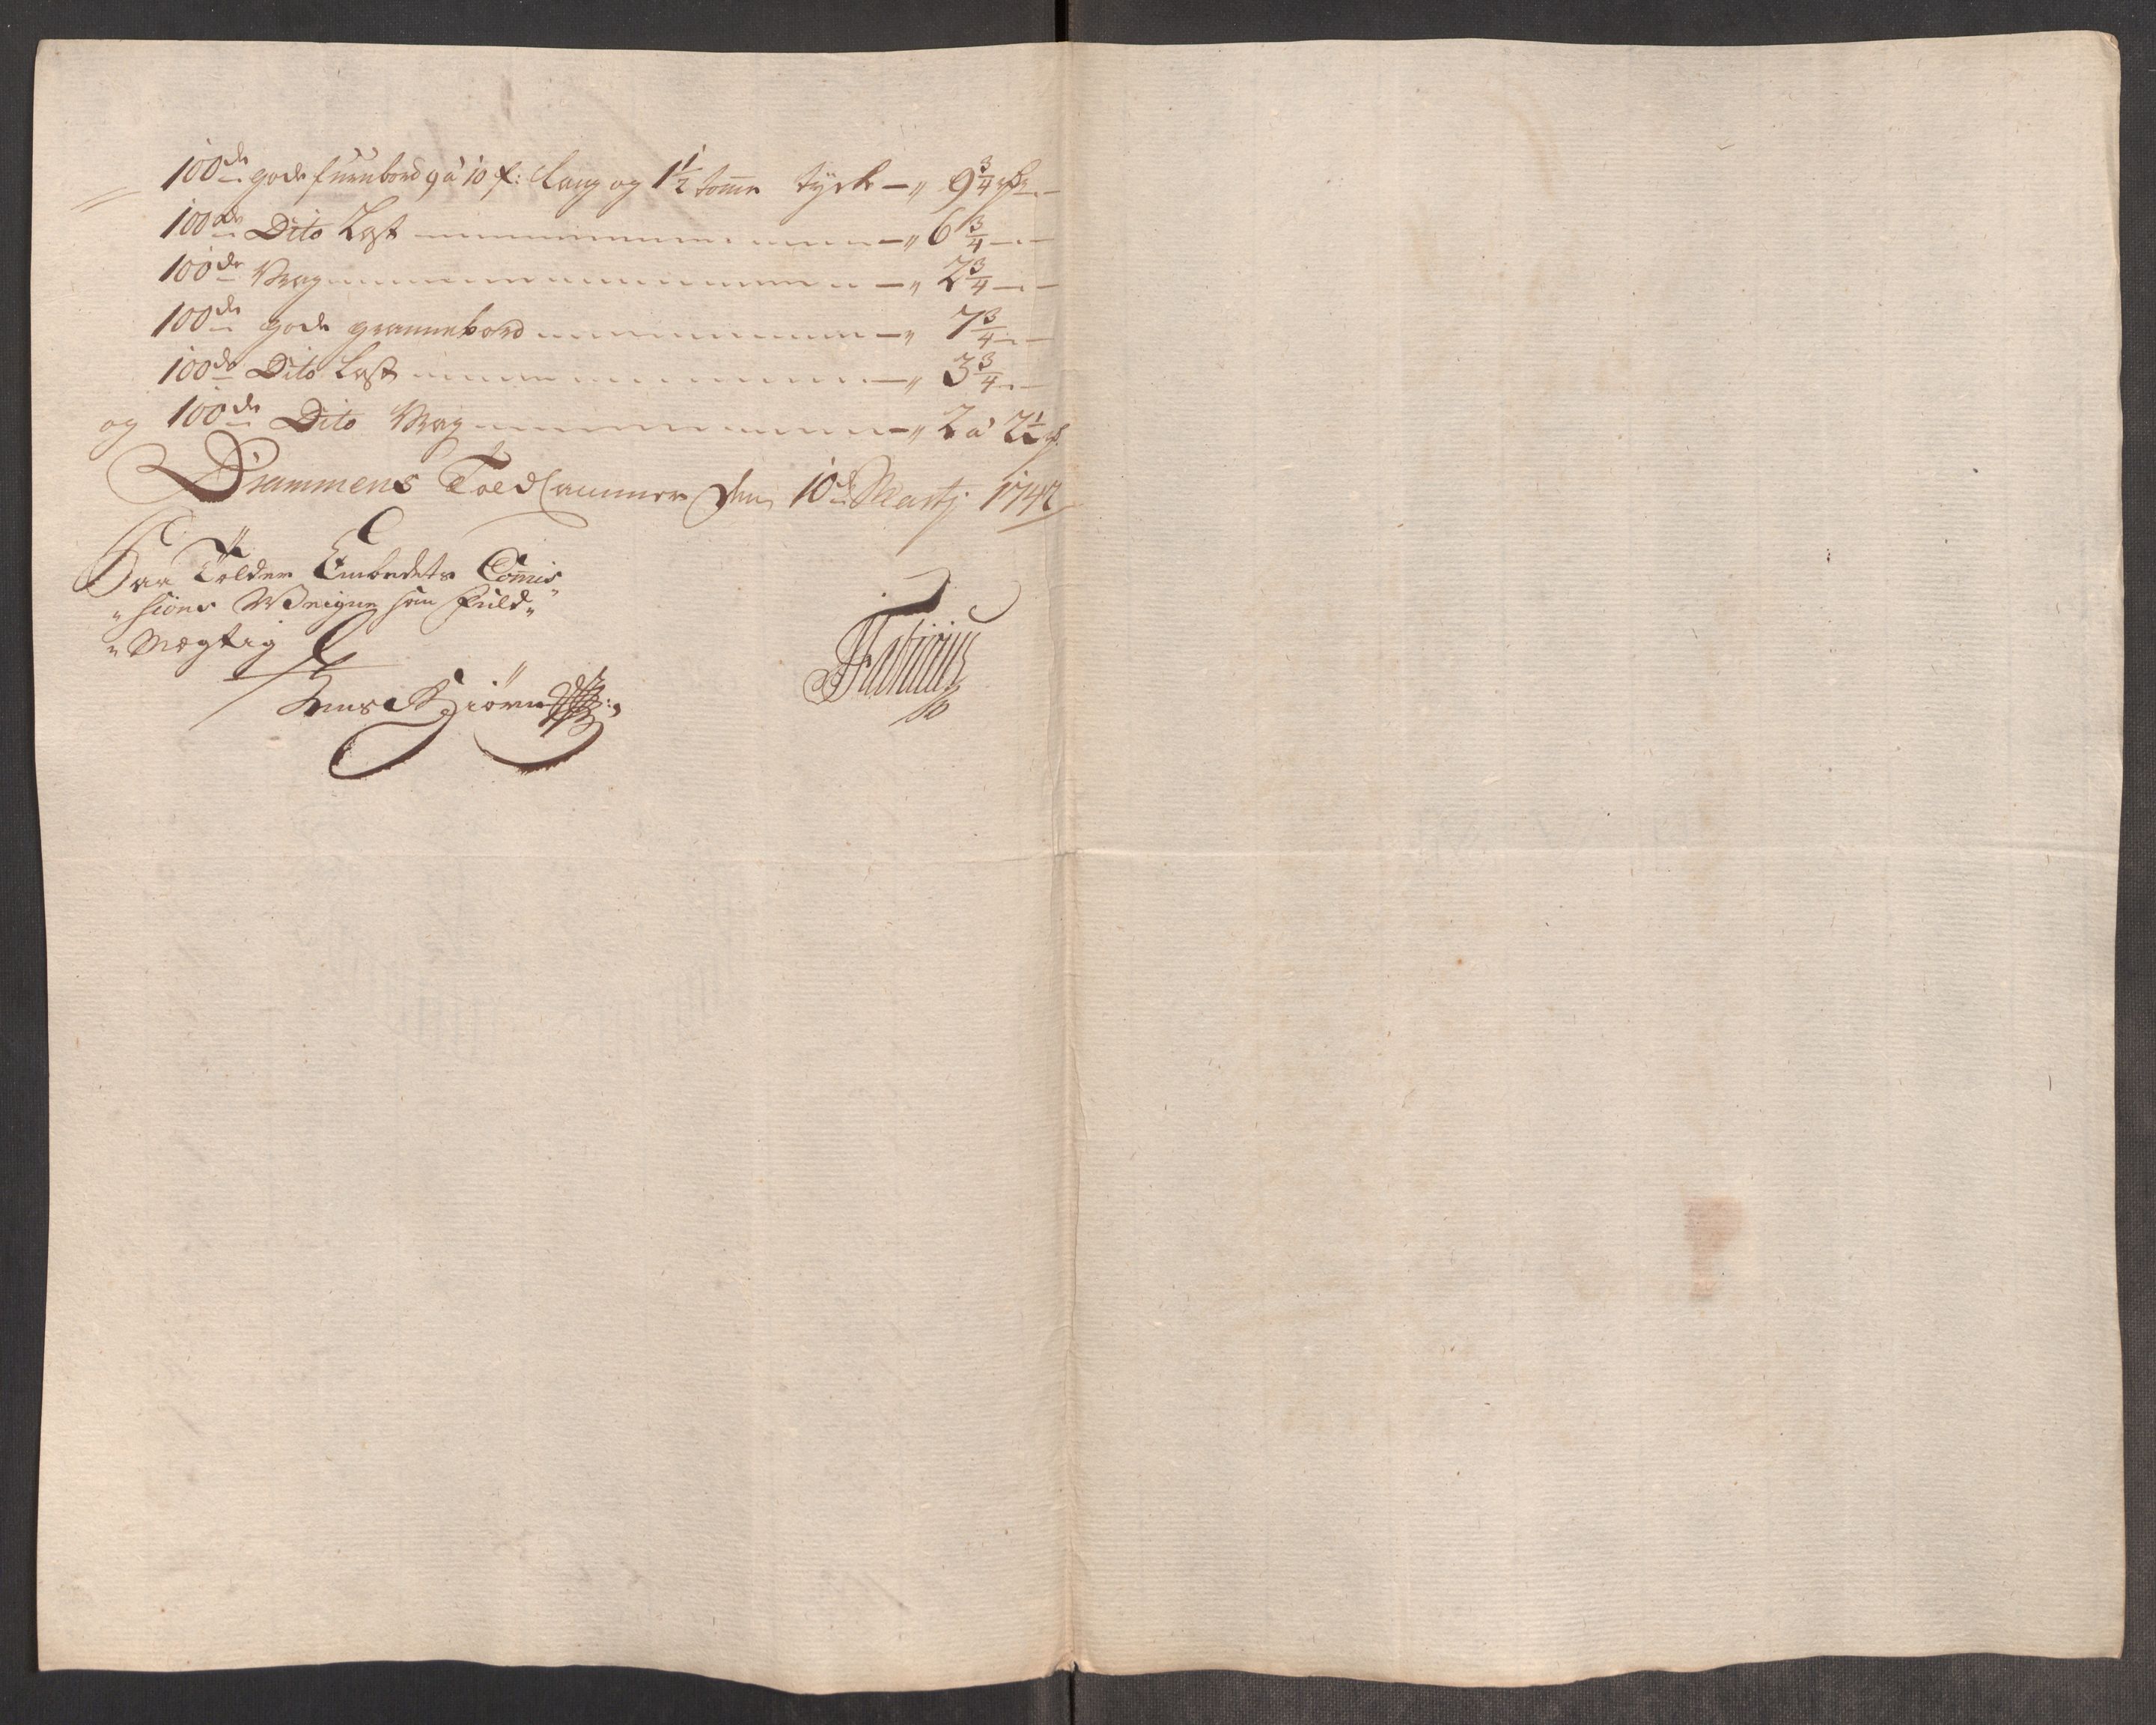 100de gode furubord 9 à 10 f: Lang og 1 1/2 tomme tyck — „ 9 3/4 Rdr —
100de Dito Last — „ 6 3/4 —
100de Vrag — „ 2 3/4 —
100de gode grannebord — „ 7 3/4 —
100de Dito Last — „ 3 3/4 —
og 100de Dito Vrag — „ 2 à 2 1/2
Drammens Toldkammer den 10de Martij 1747
Paa Tolder Embedets Commis„
„sions Weigne som Fuld„
„Mægtig
Jens Kiörn
Fabricius